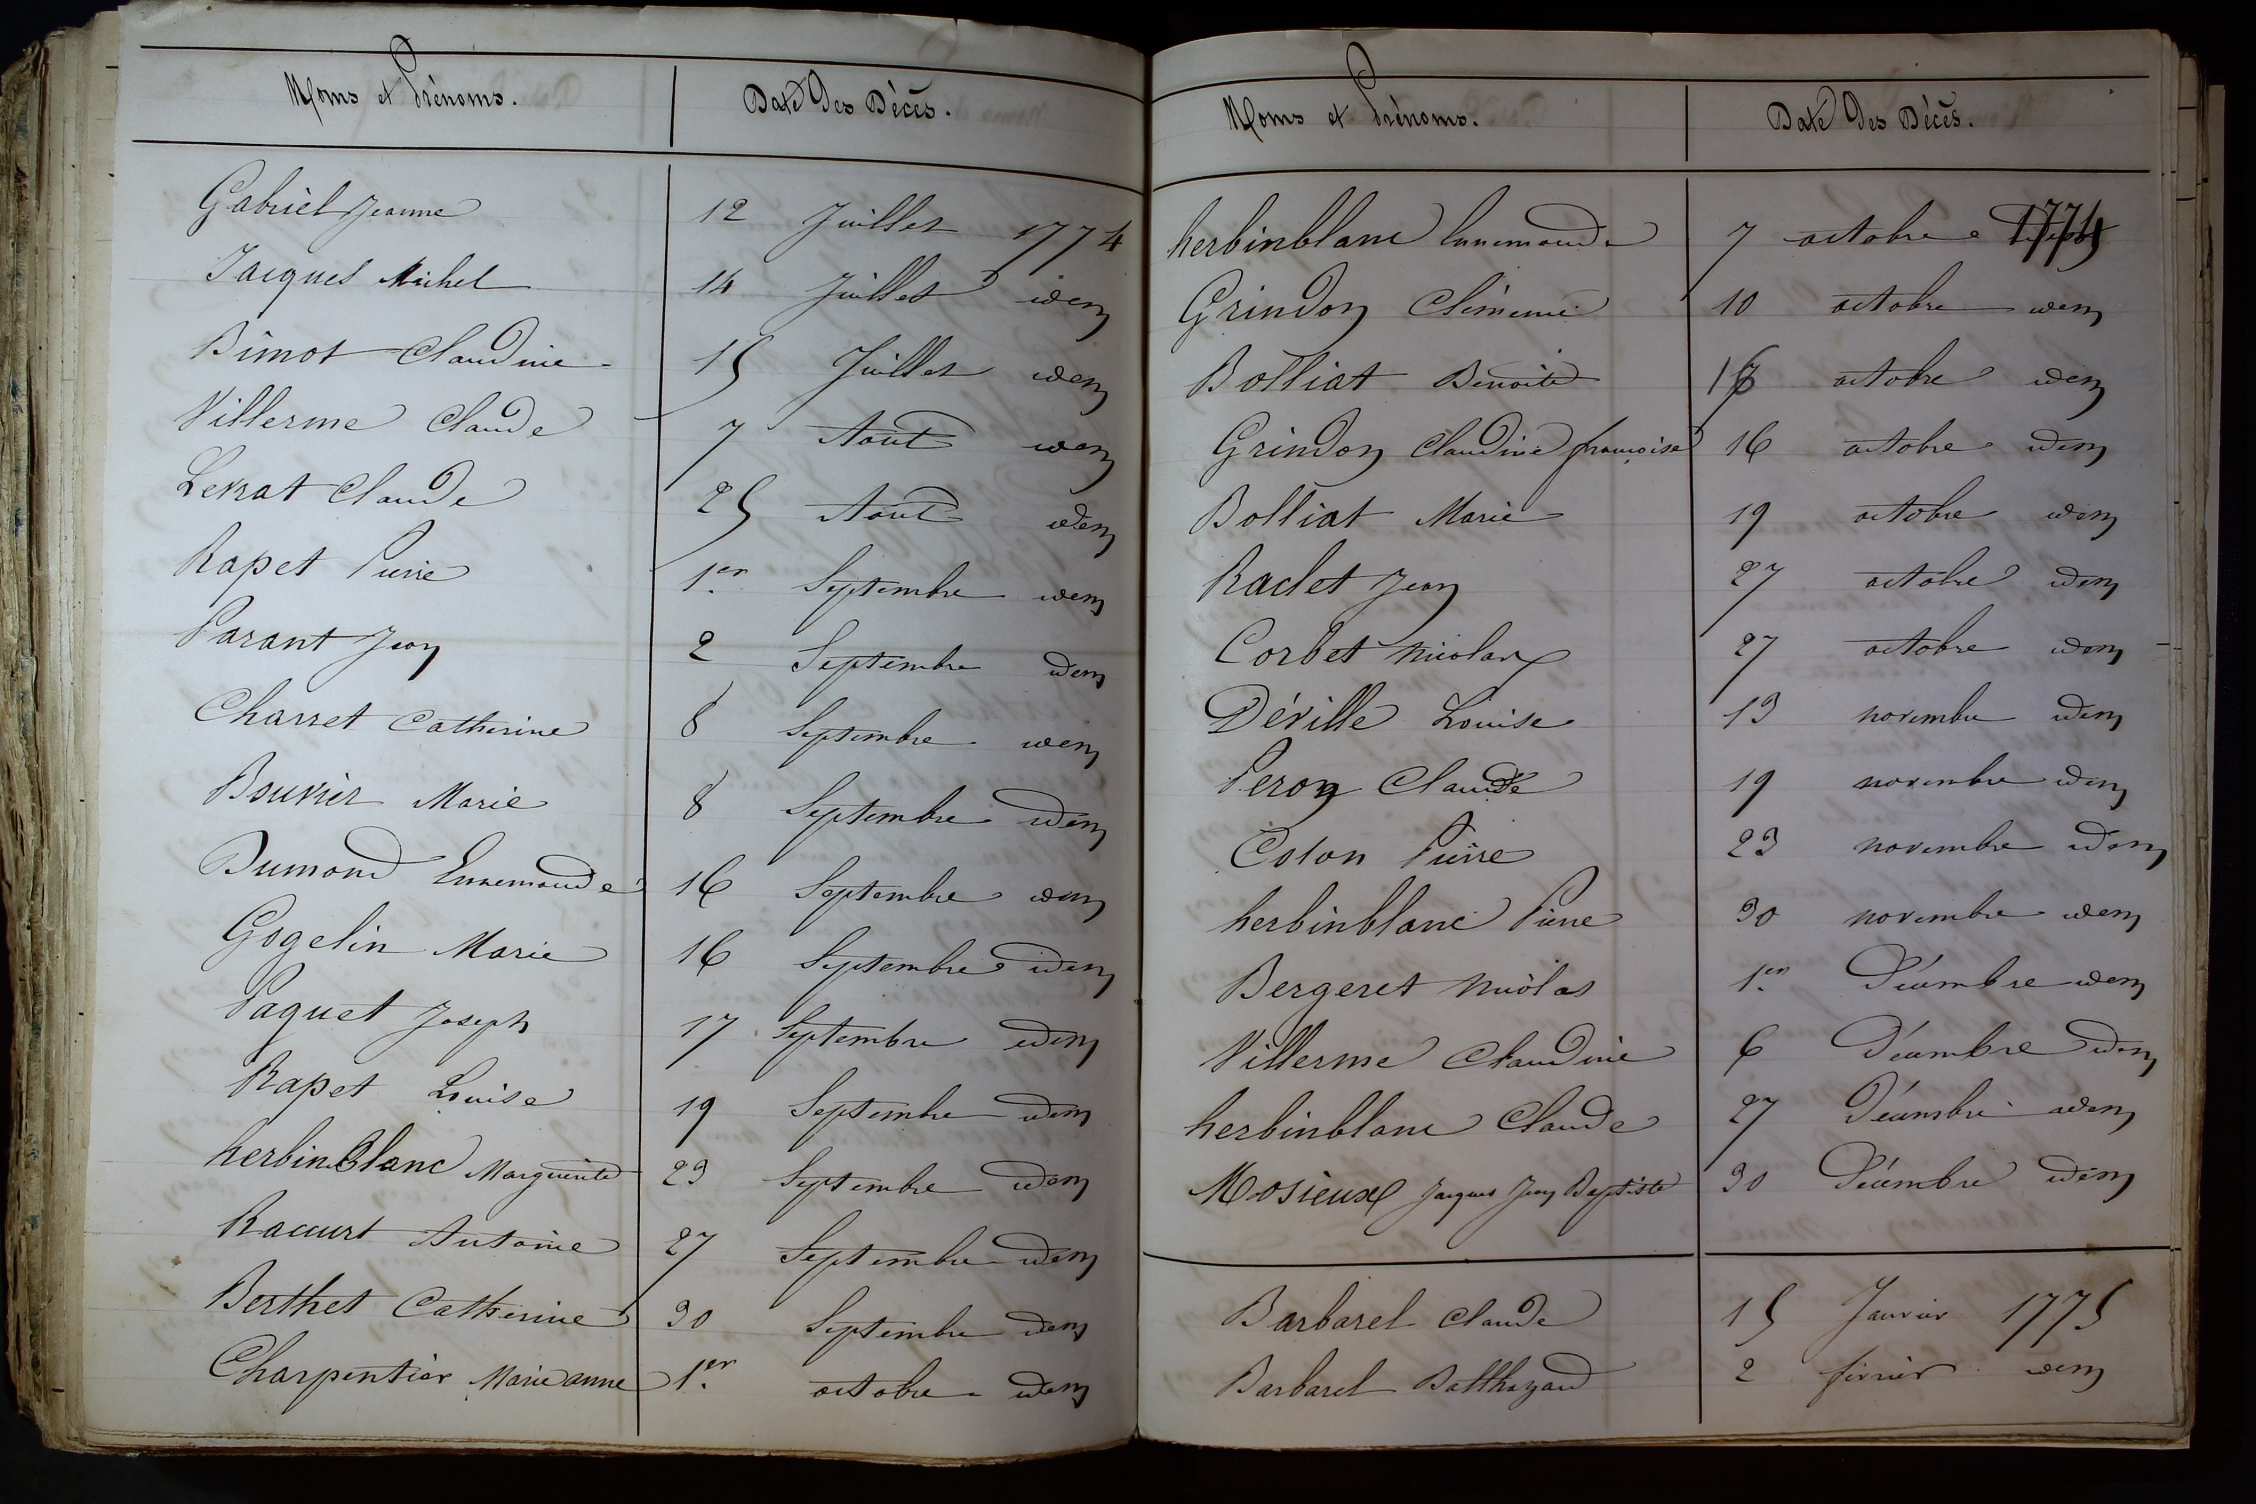 Noms et Prénoms. Date Des Décès.
Gabriel Jeanne 12 Juillet 1774
Jacques Michel 14 Juillet idem
Bimot Claudine 15 Juillet idem
Villerme Claude 7 Aout idem
Lerrat Claude 25 Aout idem
Rapet Pierre 1er Septembre idem
Parant Jean 2 Septembre idem
Charret Catherine 8 Septembre idem
Bouvier Marie 8 Septembre idem
Dumond Ennemonde 16 Septembre idem
Gogelin Marie 16 Septembre idem
Paquet Joseph 17 Septembre idem
Rapet Louise 19 Septembre idem
herbinblanc Marguerite 23 Septembre idem
Racurt Antoine 27 Septembre idem
Berthet Catherine 30 Septembre idem
Charpentier Marie anne 1er octobre idem
Noms et Prénoms. Date Des Décès.
herbinblanc Ennemonde 7 octobre 1774
Grindon Clémence 10 octobre idem
Bolliat Benoite octobre idem
Grindon Claudine françoise 16 octobre idem
Bolliat Marie 19 octobre idem
Raclet Jean 27 octobre idem
Corbet Nicolas 27 octobre idem
Déville Louise 13 novembre idem
Peron Claude 19 novembre idem
Colon Pierre 23 novembre idem
herbinblanc Pierre 30 novembre idem
Bergeret Nicolas 1er Décembre idem
Villerme Claudine 6 Décembre idem
herbinblanc Claude 27 Décembre idem
Mosieux Jacques Jean Baptiste 30 Décembre idem
Barbarel Claude 15 Janvier 1775
Barbarel Balthazard 2 février idem